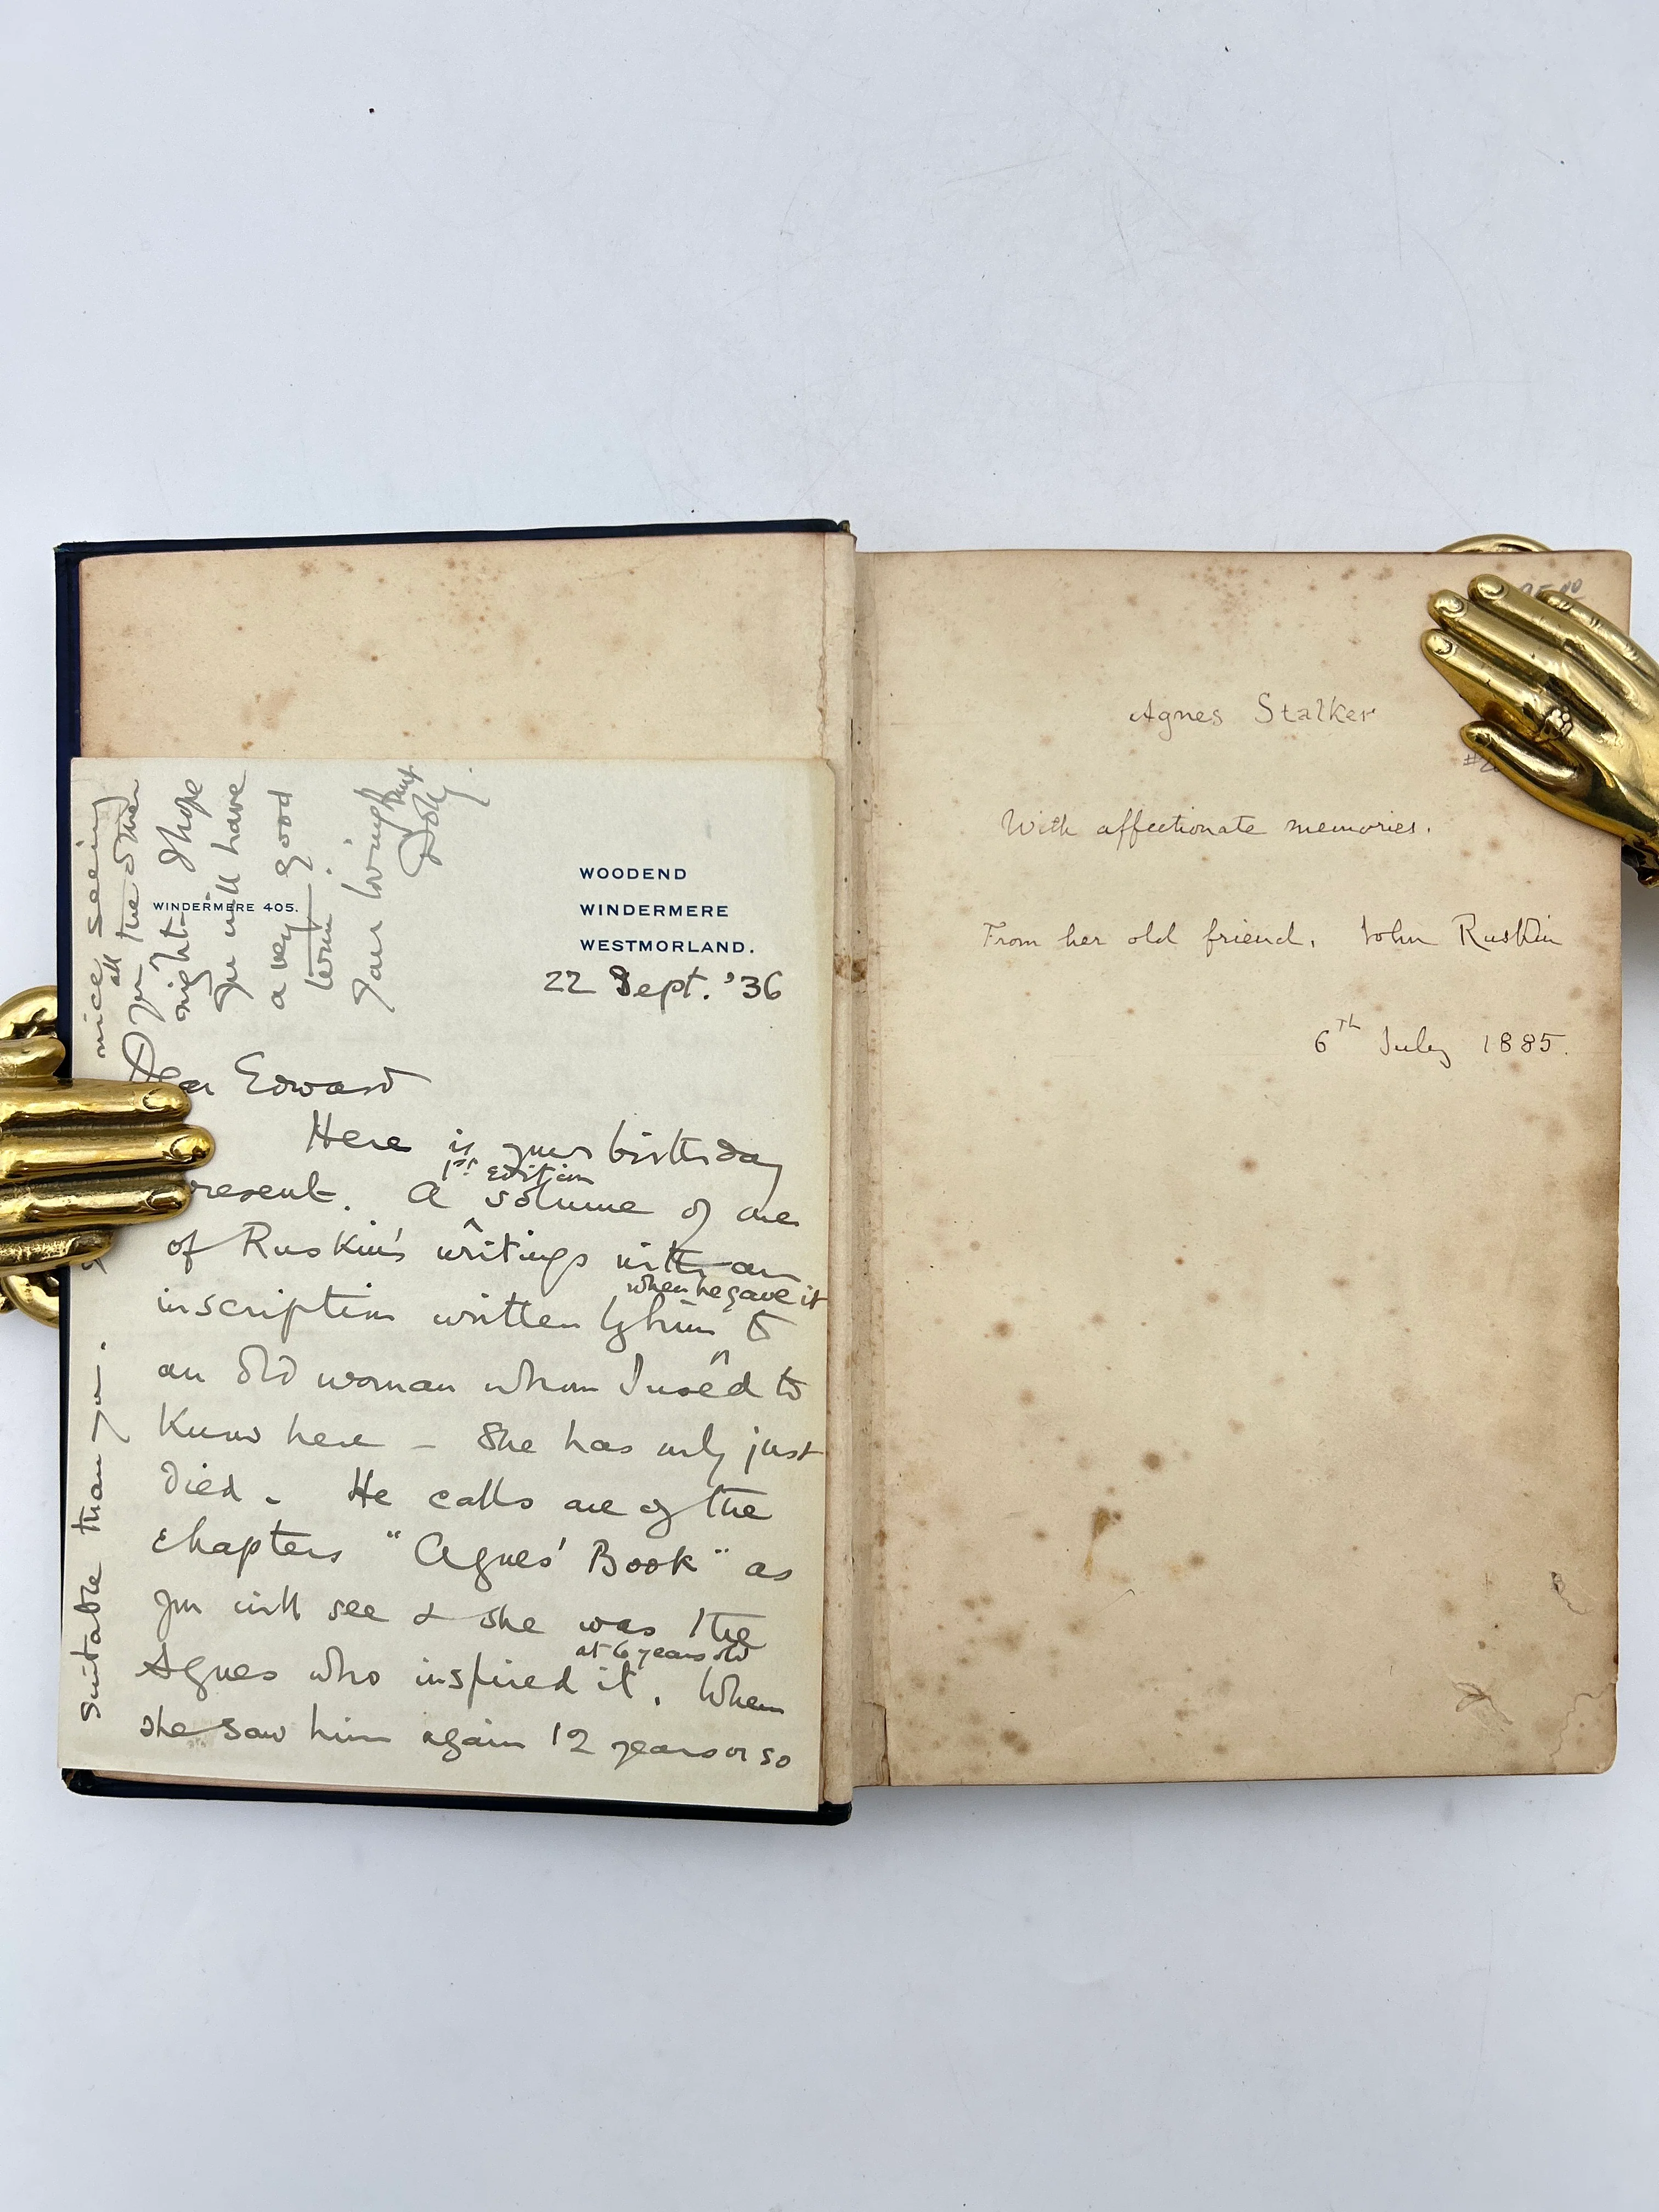 WOODEND
WINDERMERE 405.
WINDERMERE
WESTMORLAND.
22 Sept. '36
Dear Edward
Here is your birthday
present. A 1st edition volume of one
of Ruskin's writings with an
inscription written by him when he gave it to
an old woman whom I used to
know here – She has only just
died. He calls one of the
chapters "Agnes' Book" as
you will see & she was the
Agnes who inspired it at 6 years old. When
she saw him again 12 years or so
suitable than you.
nice seeing
you all the other
night. I hope
you will have
a very good
term.
Your loving
Dolly
Agnes Stalker
With affectionate memories.
From her old friend. John Ruskin
6th July 1885.